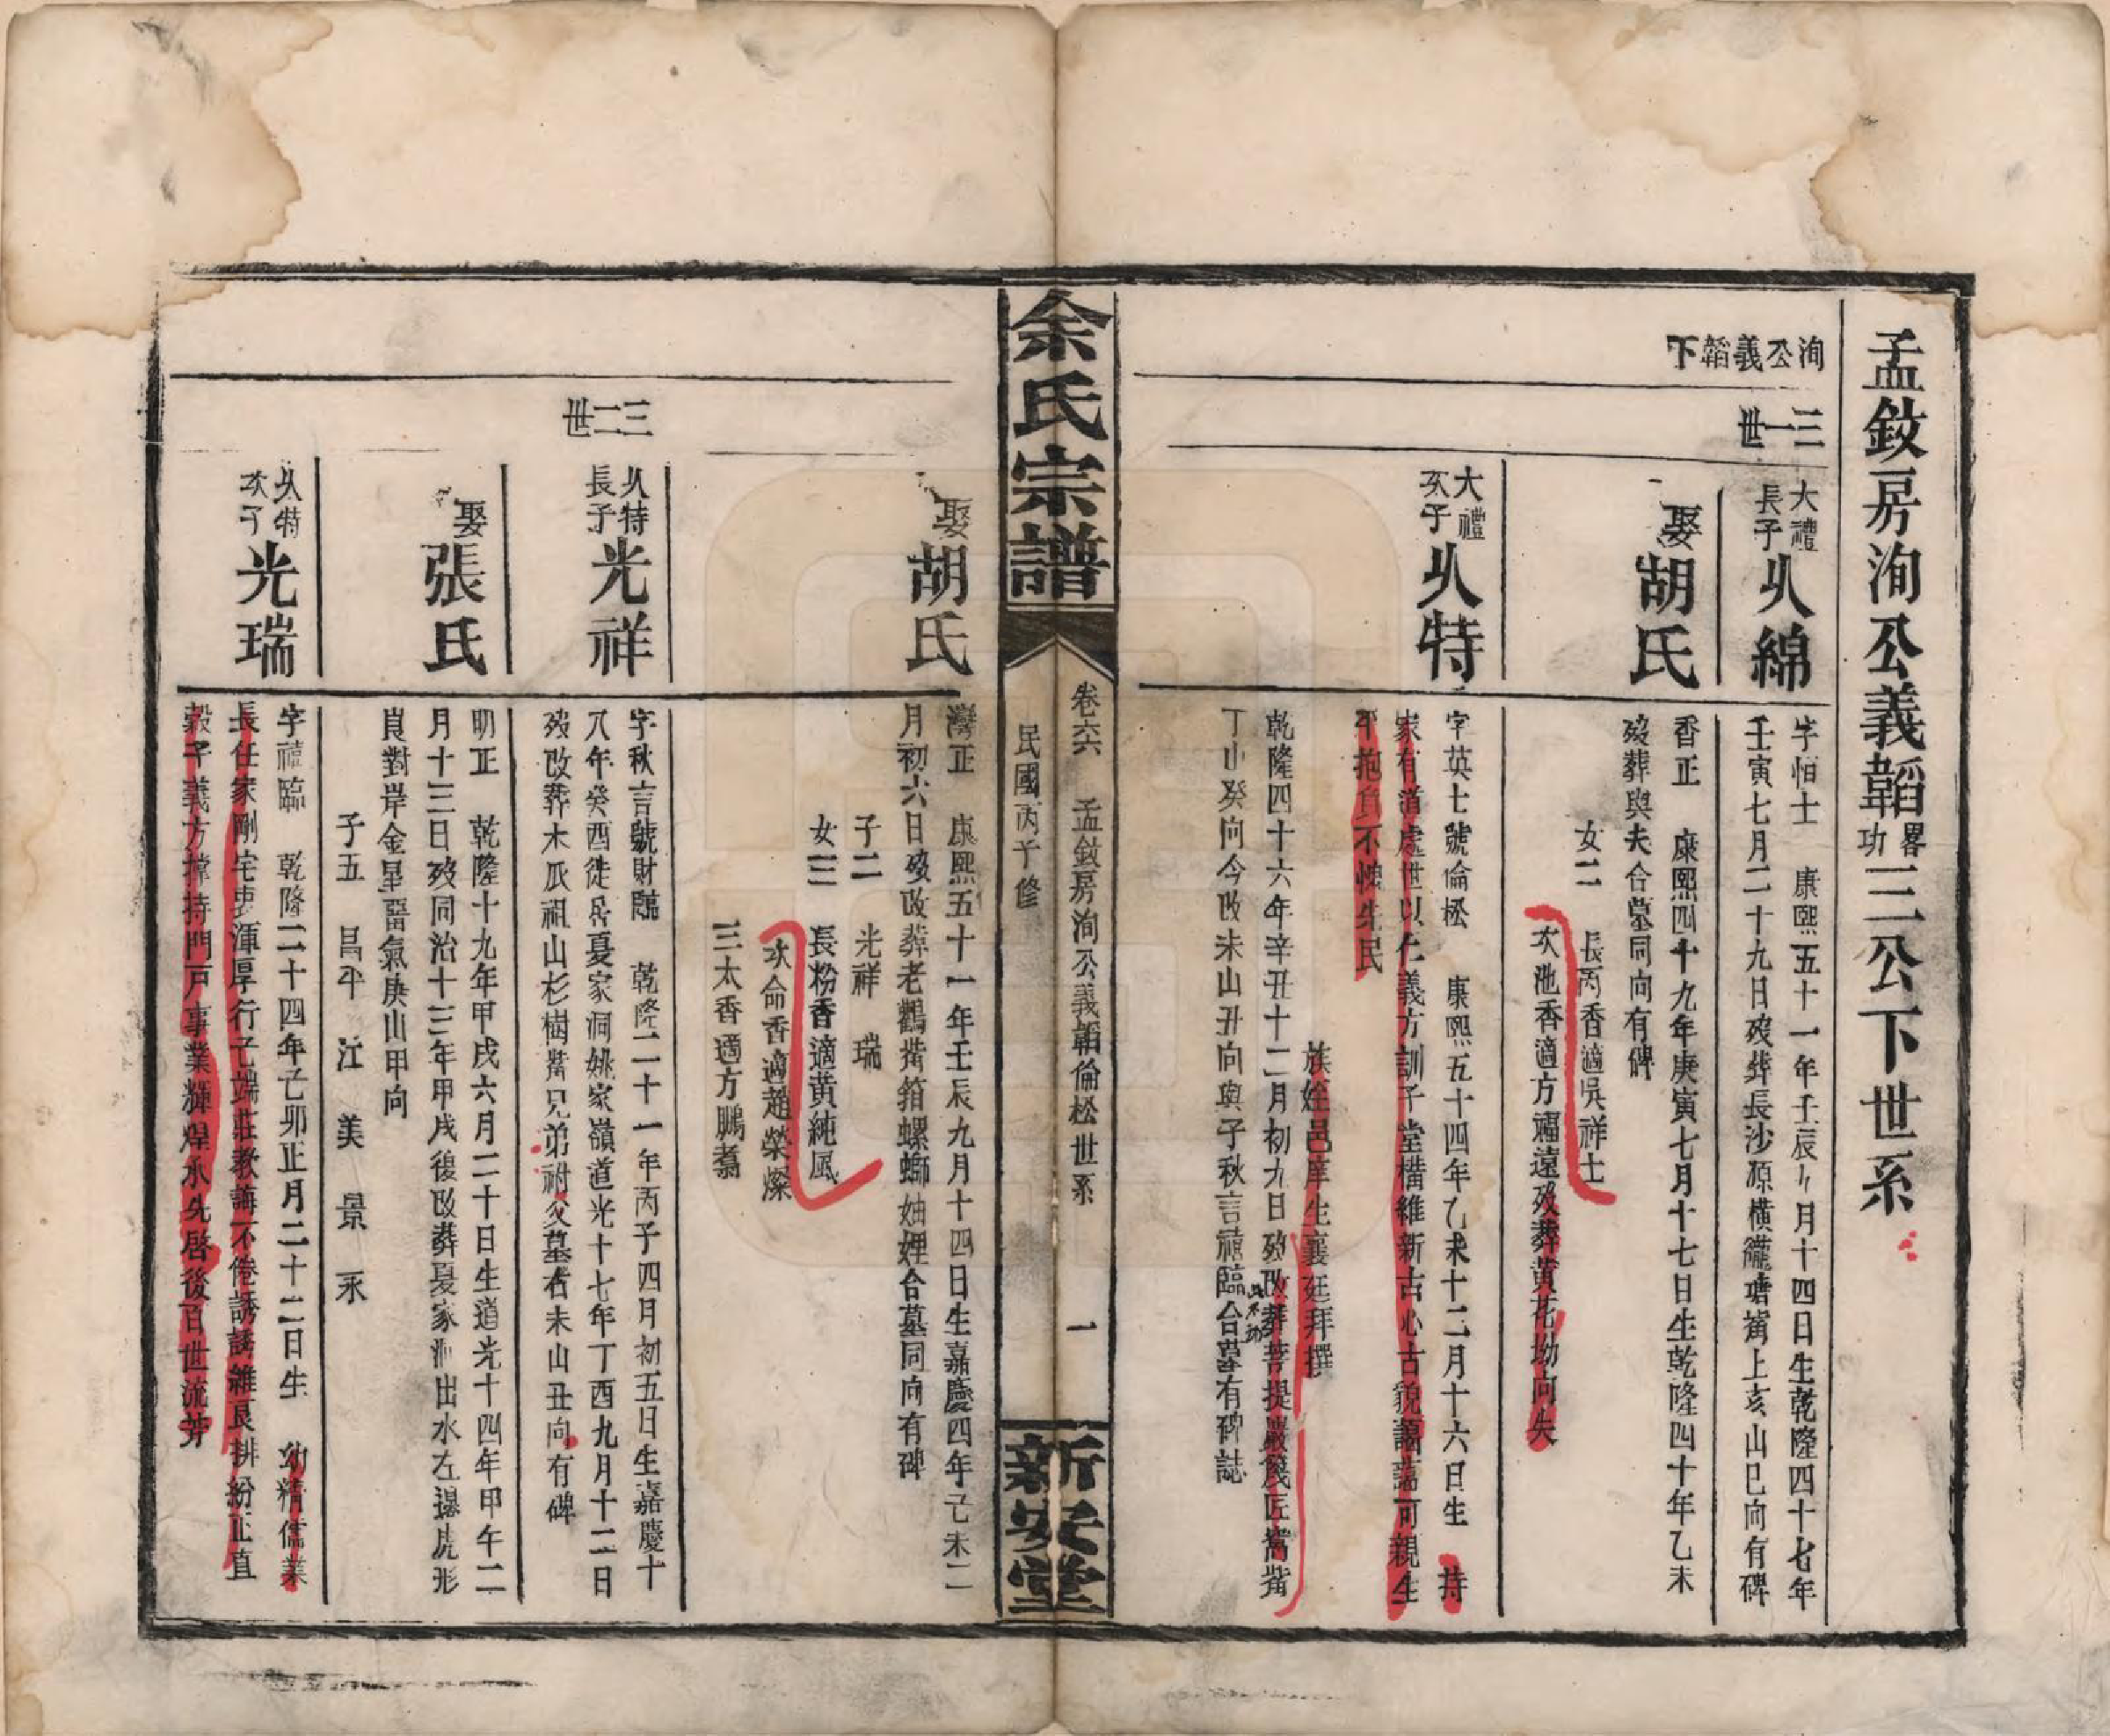 孟鈫房洵公義韜畧功三公下世系
洵公義韜下
三一世
大禮長子 㕥綿
字怕士 康熙五十一年壬辰八月十四日生乾隆四十七年
壬寅七月二十九日歿葬長沙源橫 塘 上亥山巳向有碑
娶胡氏
香正 康熙四十九年庚寅七月十七日生乾隆四十年乙未
歿葬與夫合墓同向有碑
女二 長丙香適吳祥士
次池香適方福遠歿葬黃花坳向失
大禮次子 㕥特
字英士號倫松 康熙五十四年乙未十二月十六日生 持
家有道處世以仁義方訓子堂構維新古心古貌藹藹可親生
平抱負不愧先民
族姪邑庠生襄廷拜撰
乾隆四十六年辛丑十二月初九日歿改葬菩提巖篾匠嵩嘴
丁山癸向今改未山丑向與子秋言禧臨合墓有碑誌
余氏宗譜
卷六 孟鈫房洵公義韜倫松世系 一
民國丙子修
新安堂
娶胡氏
灣正 康熙五十一年壬辰九月十四日生嘉慶四年己未二
月初六日歿改葬老鸛嘴箱螺螄妯娌合墓同向有碑
子二 光祥 瑞
女三 長枌香適黃純風
次命香適趙榮燦
三太香適方鵬翥
三二世
㕥特長子 光祥
字秋言號財臨 乾隆二十一年丙子四月初五日生嘉慶十
八年癸酉徙居夏家洞姚家嶺道光十七年丁酉九月十二日
歿改葬木瓜祖山杉樹嘴兄弟祔父墓右未山丑向有碑
娶張氏
明正 乾隆十九年甲戌六月二十日生道光十四年甲午二
月十三日歿同治十三年甲戌復改葬夏家洞出水左邊虎形
對岸金星 氣庚山甲向
子五 昌平 江 美 景 永
㕥特次子 光瑞
字禧臨 乾隆二十四年己卯正月二十二日生 幼精儒業
長任家剛宅衷渾厚行己端莊教誨不倦誘誘維艮排紛正直
穀子義方撐持門戶事業輝煌承先啓後百世流芳